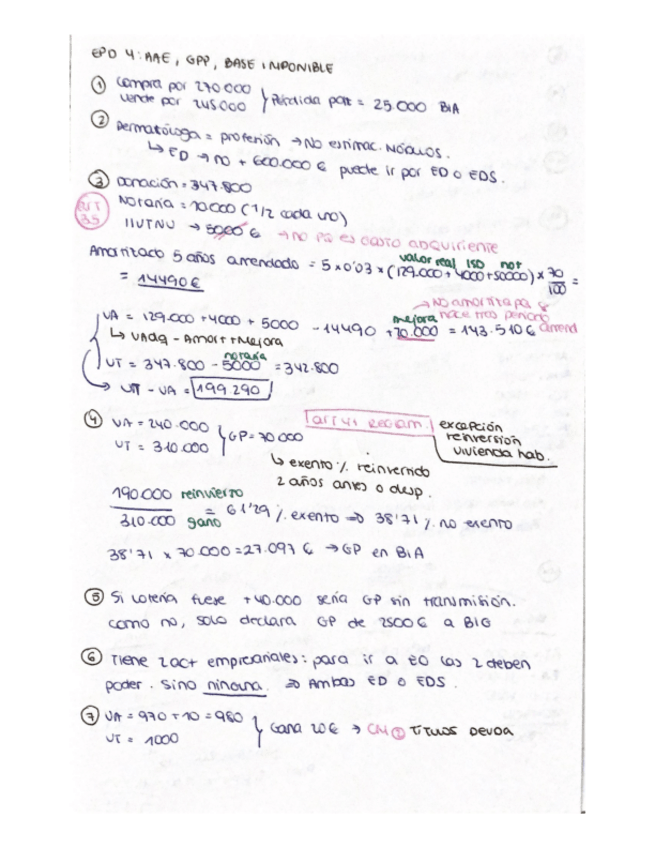 EPD 4: AAE, GPP, BASE IMPONIBLE
① Compra por 270.000
Vende por 245.000 } Pérdida patr = 25.000 BIA
② Dermatóloga = profesión → No estimac. Módulos.
↳ ED → no + 600.000 € puede ir por ED o EDS.
③ Donación = 347.800
ART 35
Notaría = 10.000 (1/2 cada uno)
IIVTNU → 5000 € → no pq es gasto adquiriente
valor real ISD not
Amortizado 5 años arrendado = 5 x 0'03 x (129.000 + 4000 + 5000) x 70/100 =
= 14490 €
→ No amortita pq
hace tres period
VA = 129.000 + 4000 + 5000 - 14490 + 70.000 = 143.510 € arrend
mejora
↳ VAdq - Amort + Mejora
notaría
VT = 347.800 - 5000 = 342.800
→ VT - VA = 199.290
④ VA = 240.000
VT = 310.000 } GP = 70.000
art 41 Reglam. excepción
reinversión
vivienda hab.
↳ exento % reinvertido
2 años antes o desp.
190.000 reinvierto
310.000 gano = 61'29 % exento ⇒ 38'71 % no exento
38'71 x 70.000 = 27.097 € → GP en BIA
⑤ Si lotería fuese + 40.000 sería GP sin transmisión.
como no, solo declara GP de 2500 € a BIG
⑥ Tiene 2 act empresariales: para ir a EO las 2 deben
poder. Sino ninguna. ⇒ Ambas ED o EDS.
⑦ VA = 970 + 10 = 980
VT = 1000 } Gana 20 € → CM ① Títulos Deuda